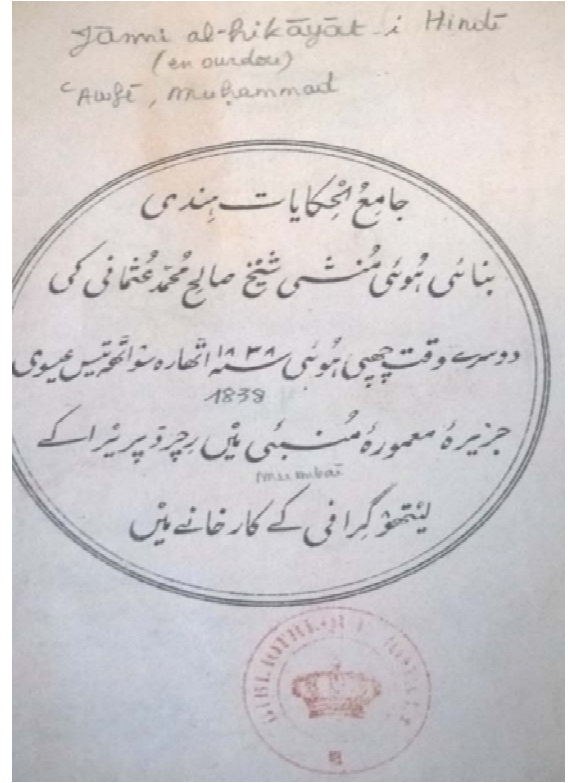 Jāmi al-hikāyāt-i Hindī
(en ourdou)
ʿAwfī, Muḥammad
جامع الحکایات ہندی
بنائی ہوئی مُنشی شیخ صالح مُحمّد عُثمانی کی
دوسرے وقت چھپی ہوئی سنہ ۱۸۳۸ اٹھارہ سو اٹھتیس عیسوی
1838
جزیرۂ معمورۂ مُنبئی میں رچرڈ پریرا کے
mumbaī
لیتھوگرافی کے کارخانے میں
BIBLIOTHEQUE ROYALE